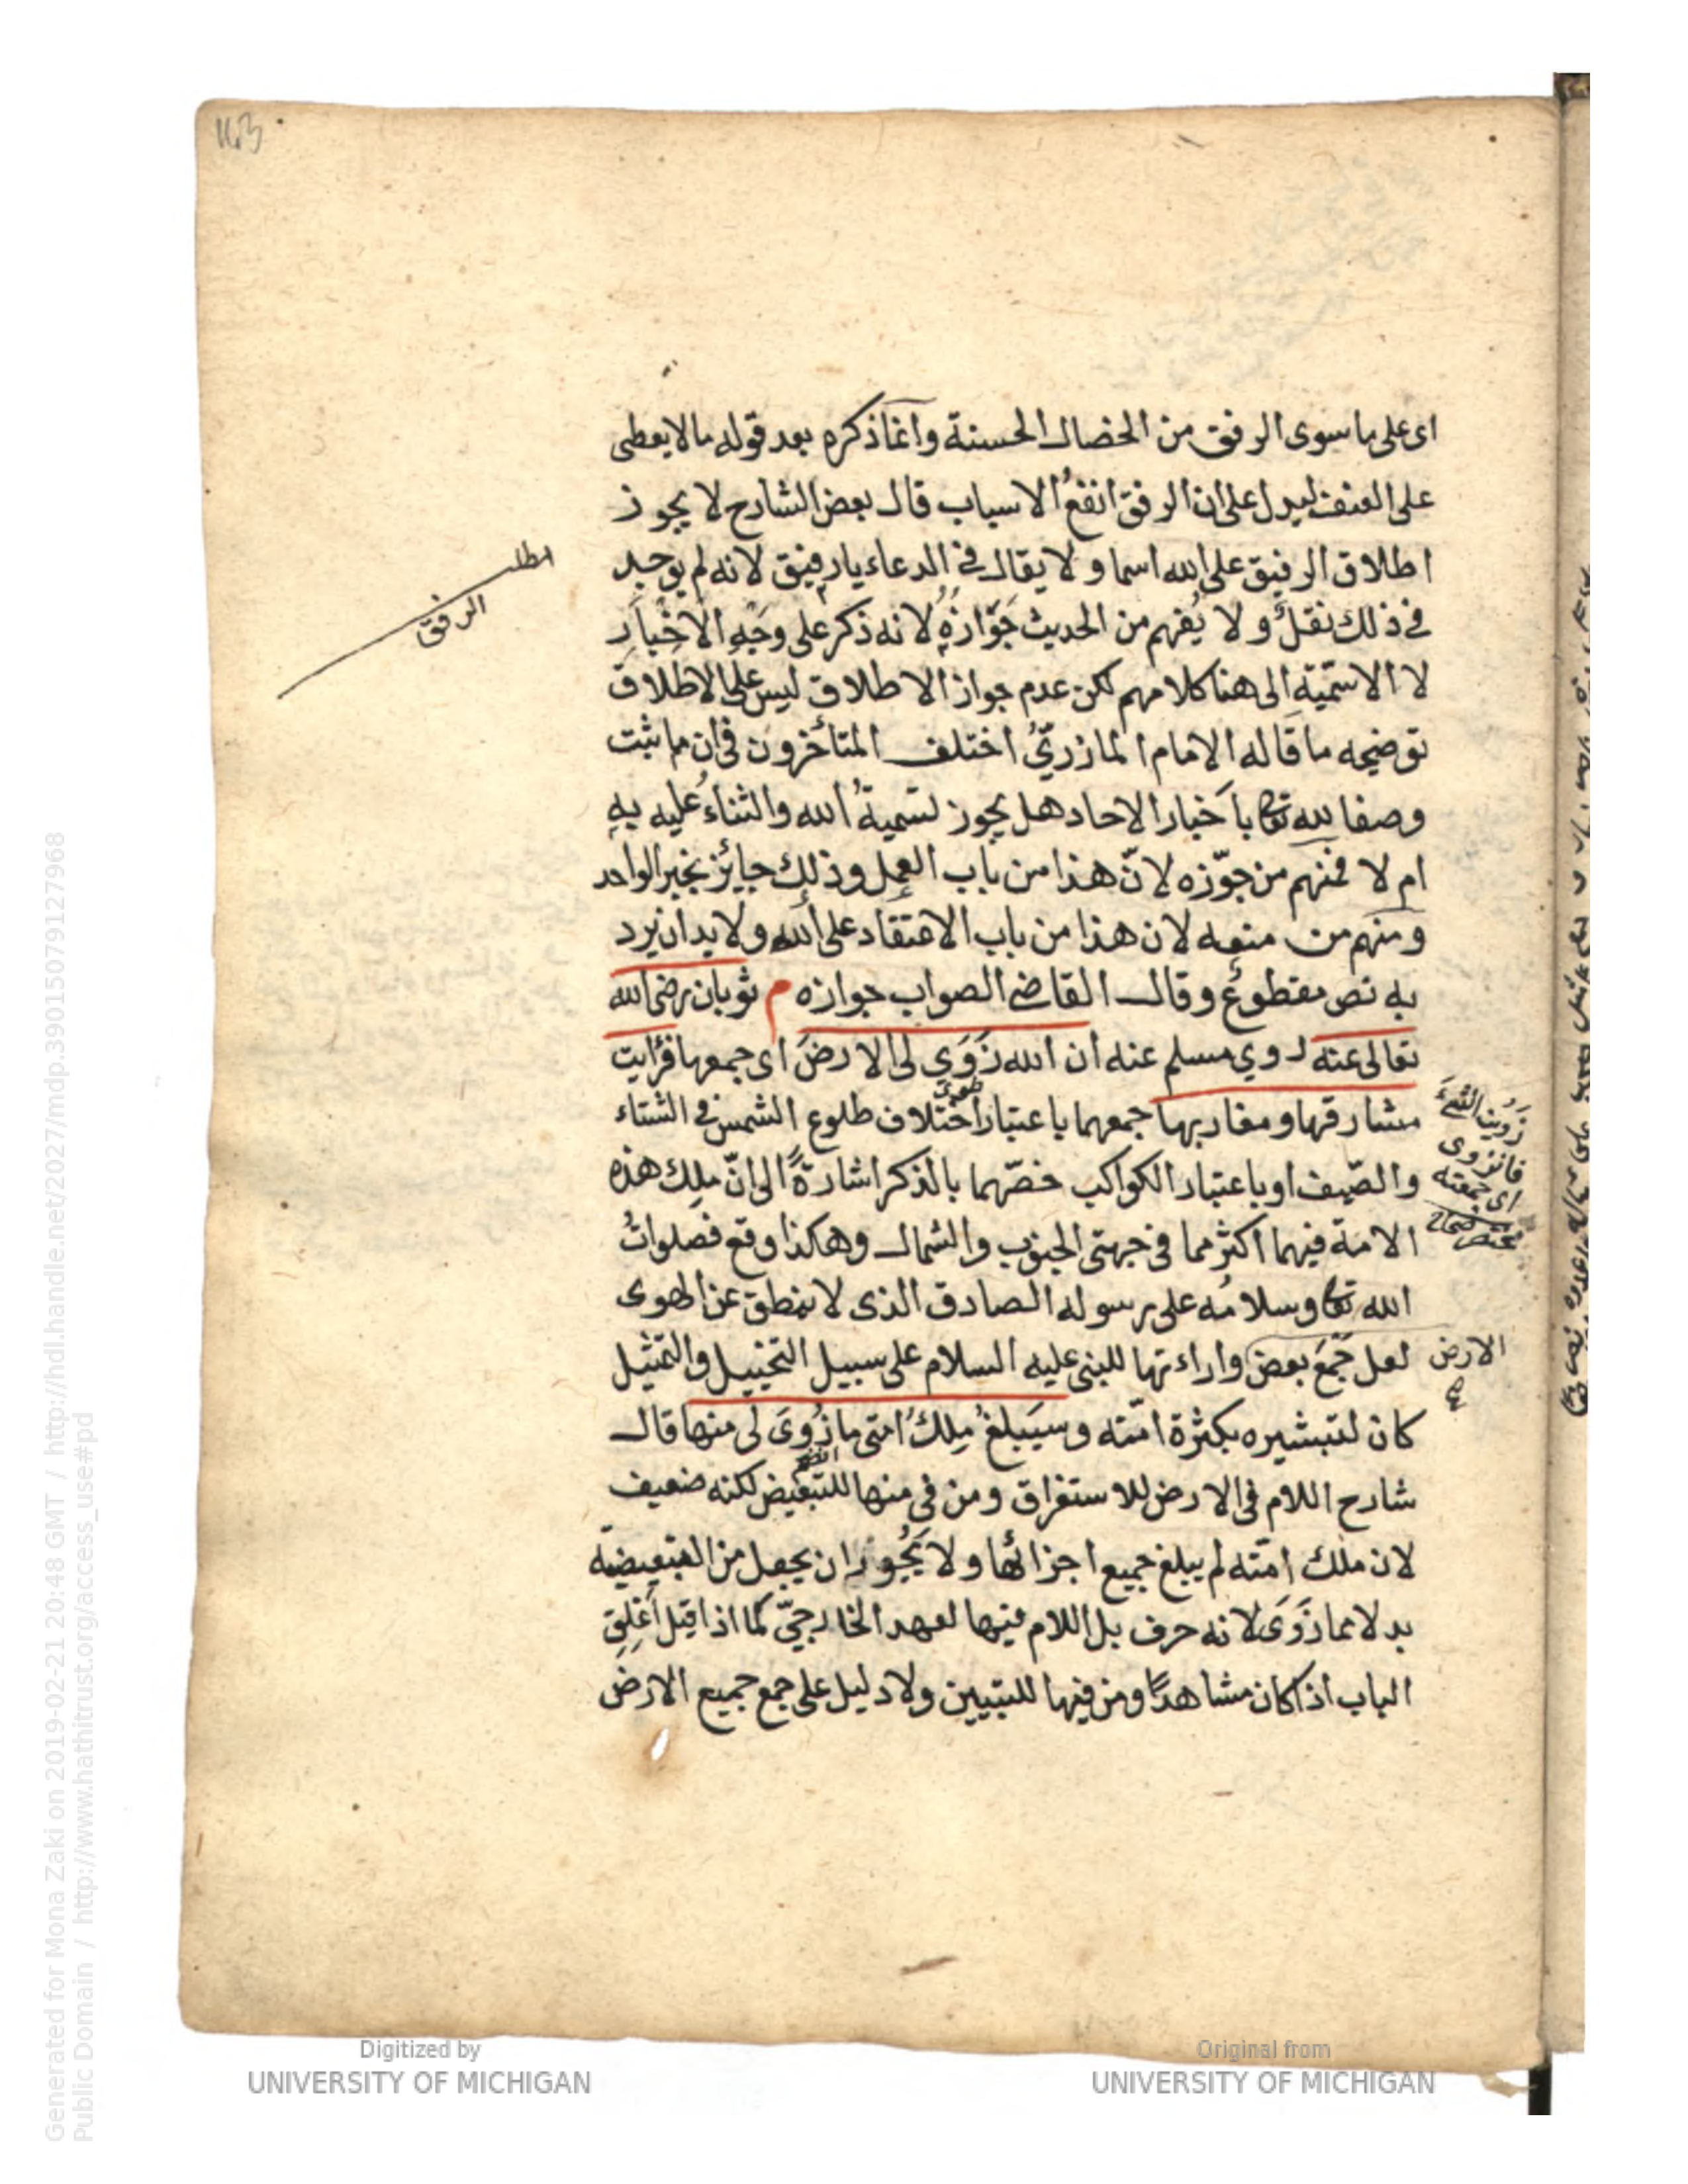 163
اى على ما سوى الرفق من الخصال الحسنة وانما ذكره بعد قوله ما لا يعطى
على العنف ليدل على ان الرفق انفع الاسباب قال بعض الشارح لا يجوز
اطلاق الرفيق على الله اسما ولا يقال فى الدعاء يا رفيق لانه لم يوجد
فى ذلك نقلٌ ولا يُفهم من الحديث جَوَازُهُ لانه ذكر على وجَهِ الاخْبارِ
لا الاسّميّةِ الى هنا كلامهم لكن عدم جواز الاطلاق ليس على الاطلاق
توضيحه ما قاله الامام المازرىّ اختلف المتأخرون فى ان ما ثبت
وصفا لله تعا باَخبار الاحاد هل يجوز تسميةُ الله والثناءُ عليه بهِ
ام لا فمنهم من جوّزه لانّ هذا من باب العمل وذلك جائز بخبر الواحد
ومنهم من منعه لان هذا من باب الاعتقاد على الله ولا بد ان يرد
به نص مقطوع وقال القاضى الصواب جوازه م ثوبان رضى الله
تعالى عنه روي مسلم عنه ان الله زَوَي لى الارضَ اى جمعها فرأيت
مشارقها ومغاربها جمعهما باعتبار اختلاف طلوع الشمس فى الشتاء
والصّيف او باعتبار الكواكب خصّهما بالذكر اشارةً الى انّ مِلك هذه
الامة فيهما اكثر مما فى جهتى الجنوب والشمال وهكذا وقع فصلواتُ
الله تعا وسلامُه على رسوله الصادق الذى لا ينطق عن الهوى
لعل جَمْعَ بعض واراءتها للنبى عليه السلام على سبيل التخييل والتمثيل
كان لتبشيره بكثرة امّته وسيَبلغُ مِلكُ امتى ما زُوىَ لى منها قال
شارح اللام فى الارض للاستغراق ومن فى منها للتبعيض لكنه ضعيف
لان ملك امّته لم يبلغ جميع اجزائها ولا يَجُوز ان يجعل من التبعيضية
بدلا مما زَوَىَ لانه حرف بل اللام فيها لعهد الخارجىّ كما اذا قيل اُغلِق
الباب اذا كان مشاهدًا ومن فيها للتبيين ولا دليل على جمع جميع الارض
الرفق
زَوَيْتُ الشئَ
فانزوى
اى جمعته
الارض
Digitized by
UNIVERSITY OF MICHIGAN
Original from
UNIVERSITY OF MICHIGAN
Generated for Mona Zaki on 2019-02-21 20:48 GMT / http://hdl.handle.net/2027/mdp.39015079127968
Public Domain / http://www.hathitrust.org/access_use#pd